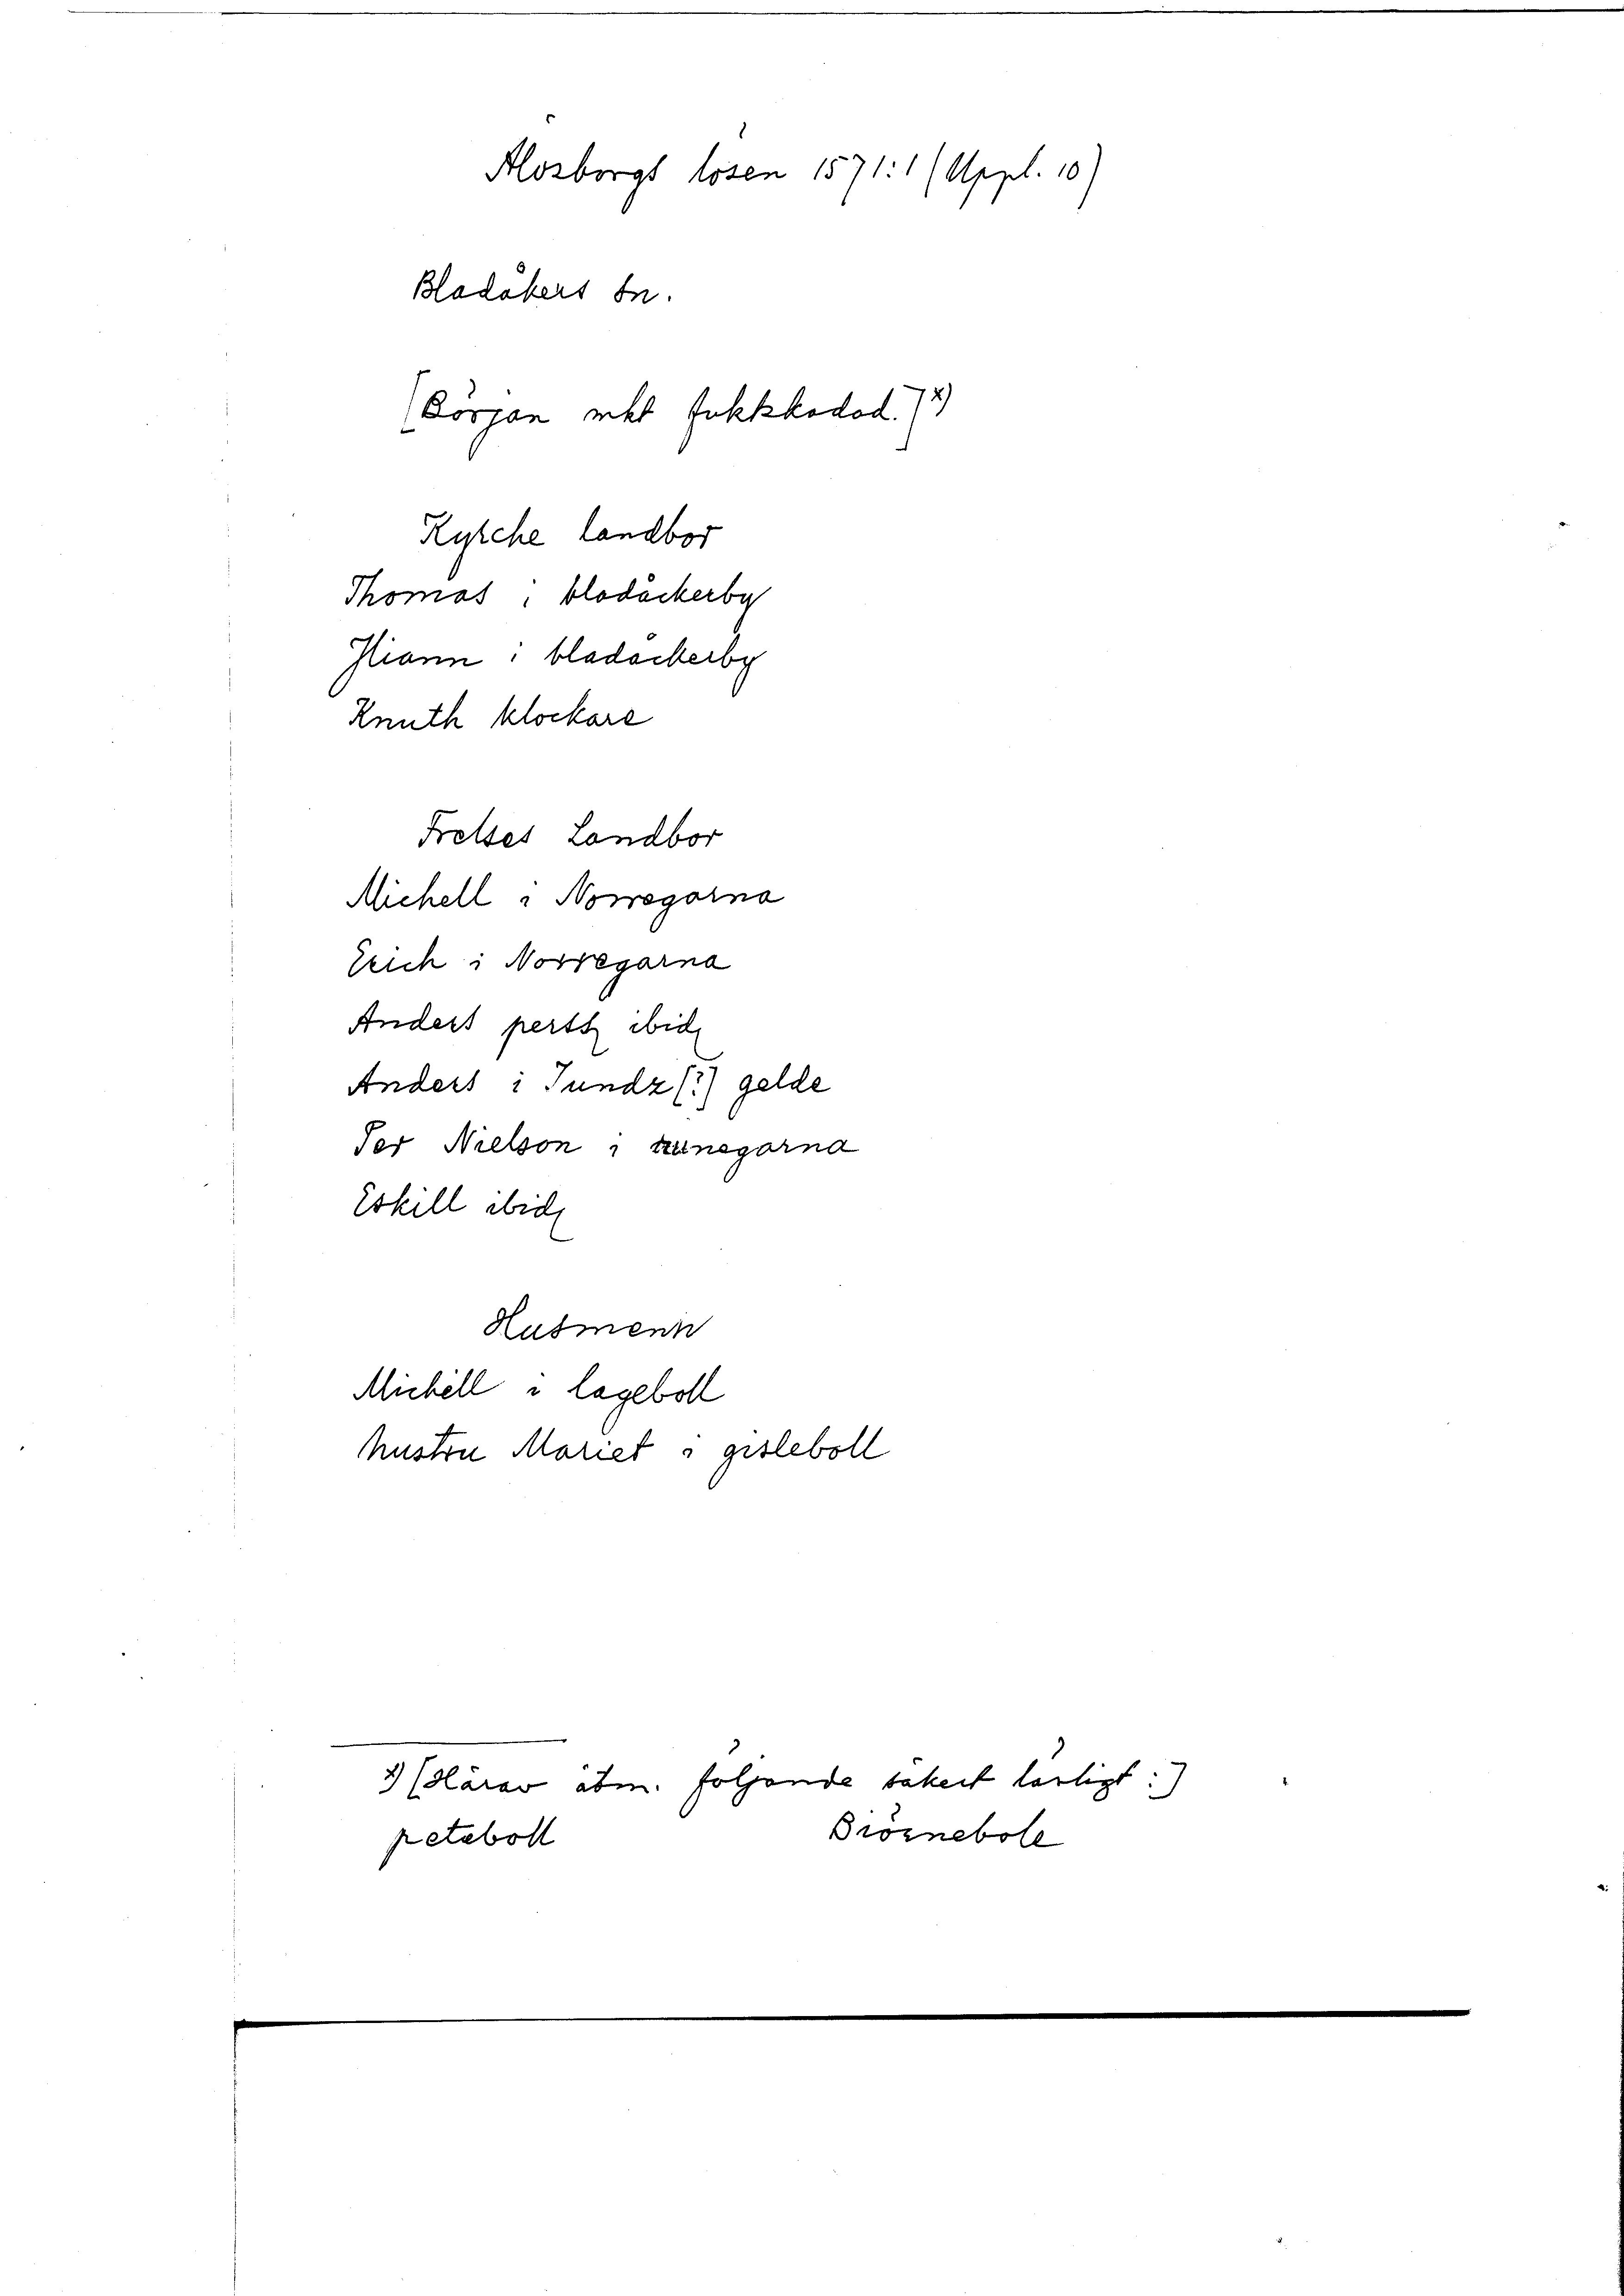 Älvsborgs lösen 1571:1 (Uppl. 10)
Bladåkers sn.
[Början mkt fuktskadad.] x)
Kyrche landbor
Thomas i bladåckerby
Stiann i bladåckerby
Knuth klockare
Frelses Landbor
Michell i Norregarna
Erich i Norregarna
Anders perss ibid
Anders i Sundz(?) gelde
Per Nielson i runegarna
Eskill ibid
Husmenn
Michell i lageboll
hustru Mariet i gisleboll
x) [Härav åtm. följande säkert läsligt:]
peteboll Biörnebole